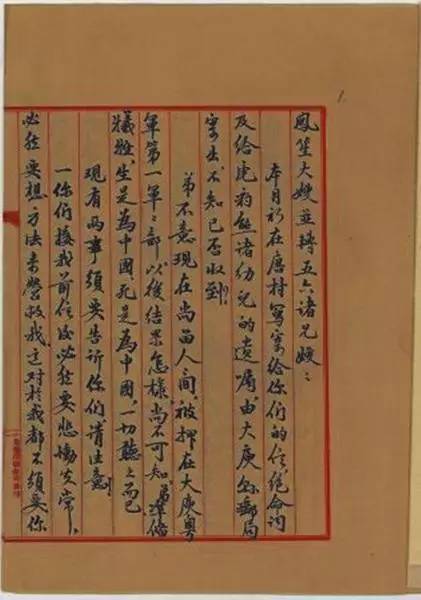 1.
鳳笙大嫂並轉五六諸兄嫂:
本月初在唐村寫寄給你們的信,絕命詞
及給虎豹熊諸幼兒的遺囑,由大庾縣郵局
寄出,不知已否收到?
弟不意現在尚留人間,被押在大庾粵
軍第一軍々部,以後結果怎樣,尚不可知,弟準備
犧牲,生是為中國,死是為中國,一切聽之而已
現有兩事須要告訴你們請注意!
一你們接我前信後必然要悲慟失常,
必然要想方法來營救我,这對於我都不須要你